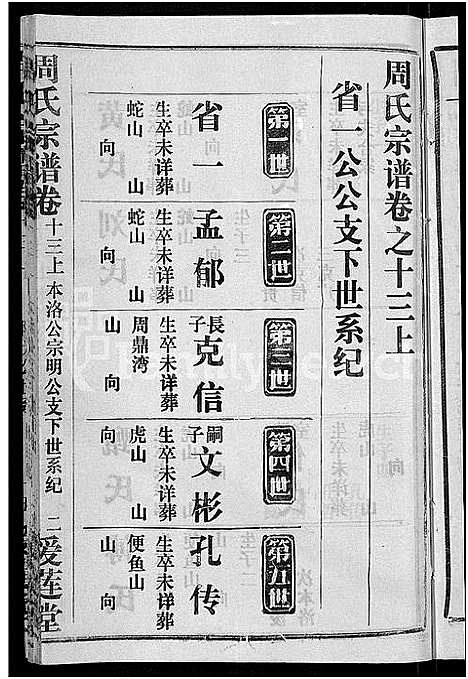 周氏宗谱卷之十三上
省一公公支下世系纪
第一世
省一
生卒未详葬
蛇山 山
向
第二世
孟郁
生卒未详葬
蛇山 山
向
第三世
長子克信
生卒未详葬
周鼎湾
山 向
第四世
嗣子文彬
生卒未详葬
虎山 山
向
第五世
孔传
生卒未详葬
便鱼山
山 向
周氏宗谱卷十三上 本洛公宗明公支下世系纪 二 爱莲堂